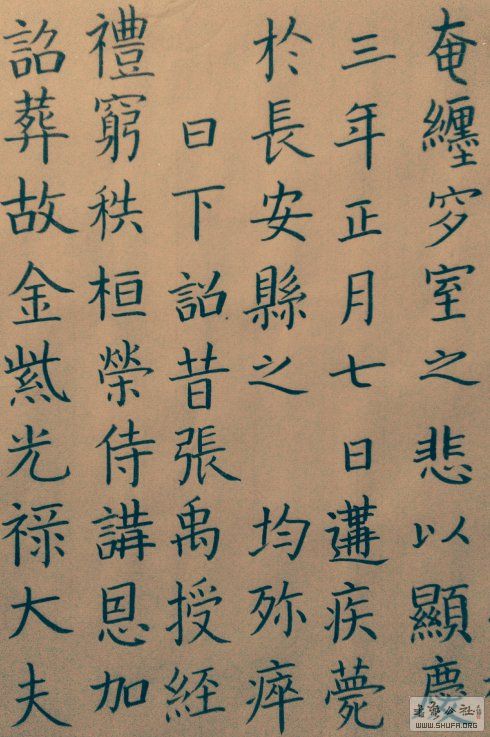 奄纏穸室之悲以顯慶
三年正月七日遘疾薨
於長安縣之 均弥瘁
日下詔昔張禹授経
禮窮秩桓榮侍講恩加
詔葬故金紫光禄大夫
WWW.SHUFA.ORG